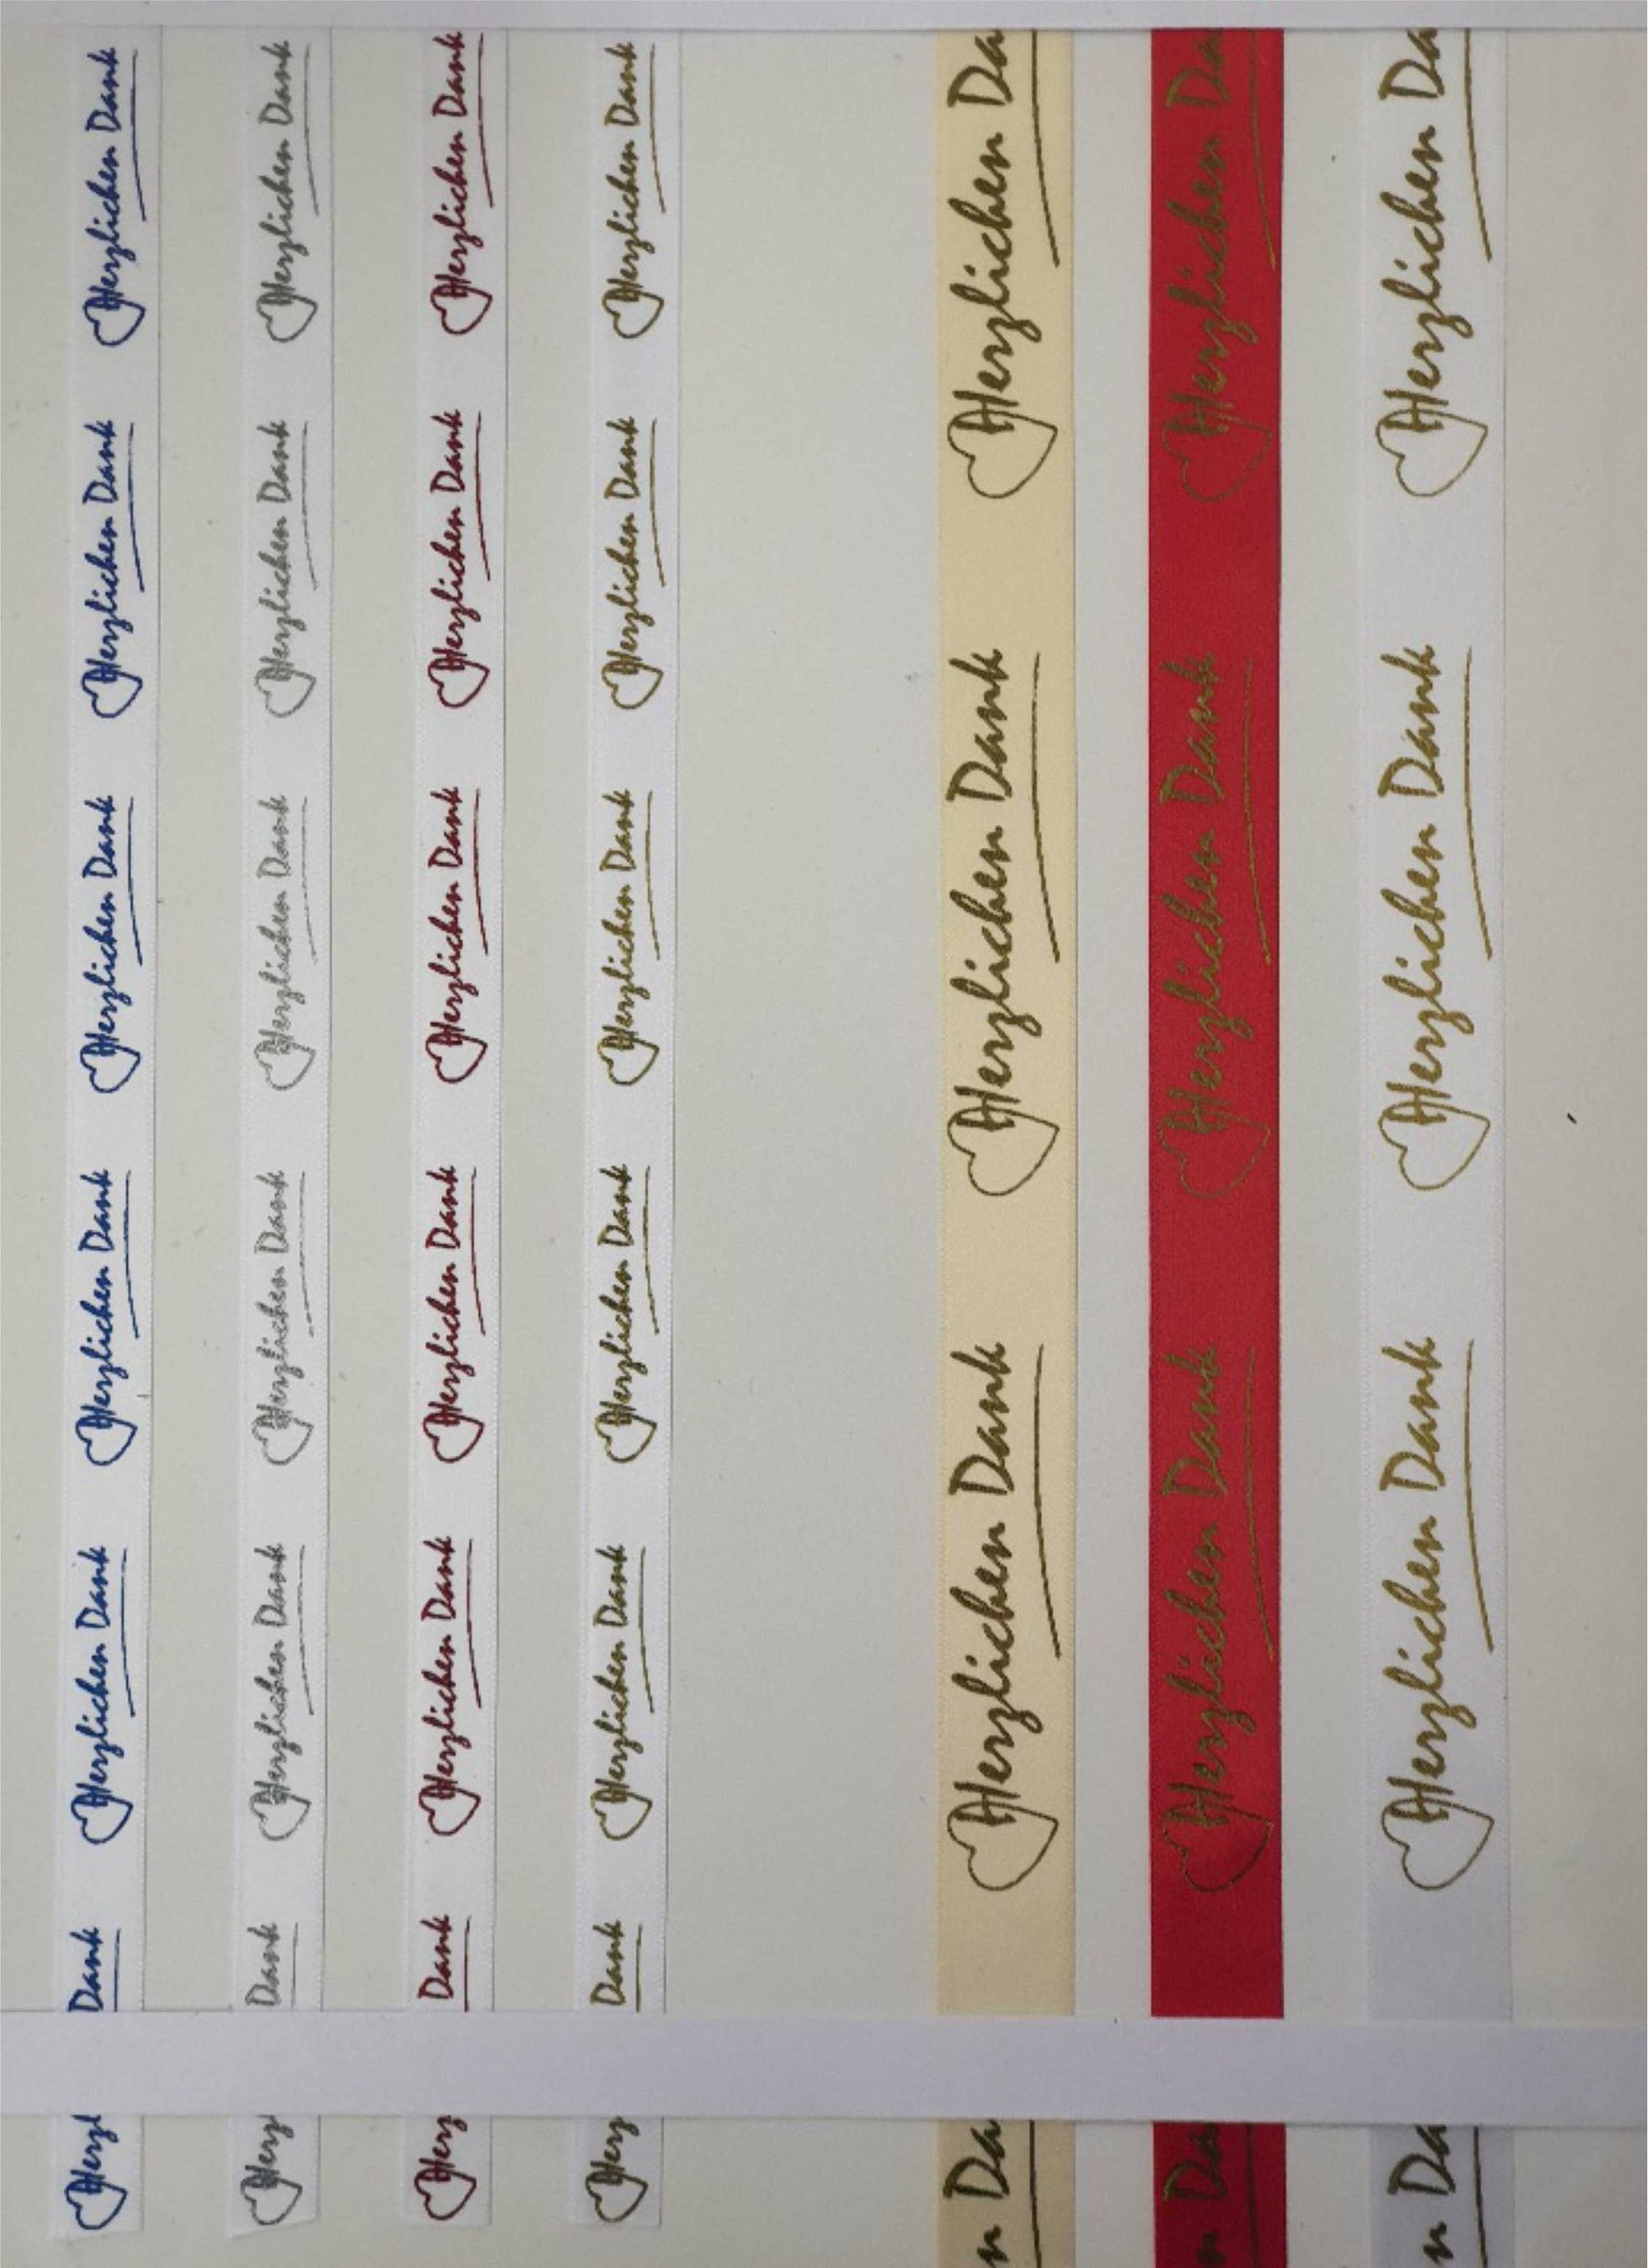 Herzl Dank Herzlichen Dank Herzlichen Dank Herzlichen Dank Herzlichen Dank Herzlichen Dank
Herz Dank Herzlichen Dank Herzlichen Dank Herzlichen Dank Herzlichen Dank Herzlichen Dank
Herz Dank Herzlichen Dank Herzlichen Dank Herzlichen Dank Herzlichen Dank Herzlichen Dank
Herz Dank Herzlichen Dank Herzlichen Dank Herzlichen Dank Herzlichen Dank Herzlichen Dank
n Da Herzlichen Dank Herzlichen Dank Herzlichen Da
n Da Herzlichen Dank Herzlichen Dank Herzlichen Da
n Da Herzlichen Dank Herzlichen Dank Herzlichen Da